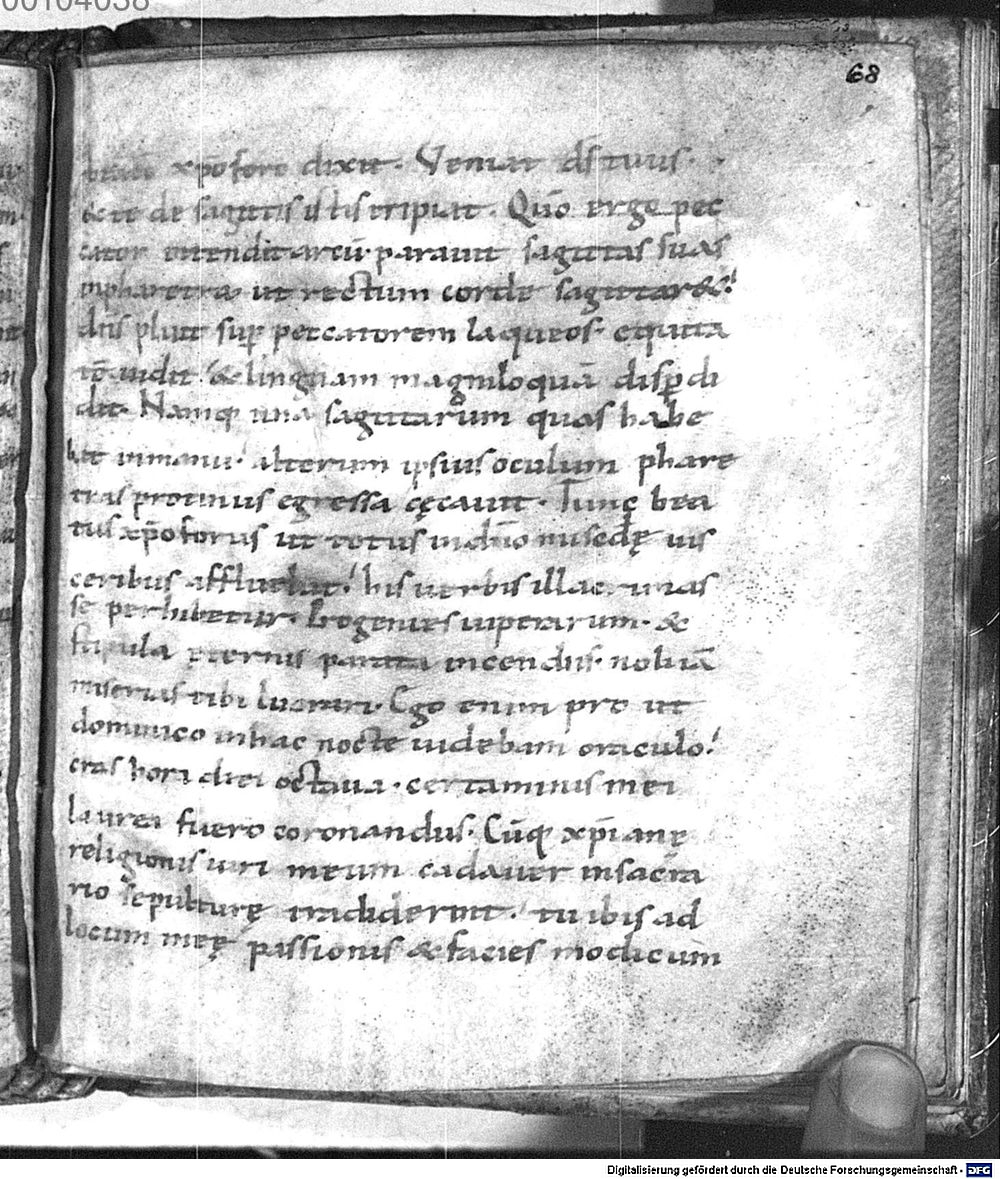 00104038
68
xp̄o fore dixit. Veniat d̄s tuus.
& te de sagittis istis eripiat. Qūo ergo pec
cator intendit arcū. parauit sagittas suas
inpharetra ut rectum corde sagittar&;
dn̄s pluit sup̱ peccatorem laqueos. equita
tē uidit. & linguam magniloquā disp̱di
dit. Namq; una sagittarum quas habe
bat inmanu. alterum ipsius oculum phare
tras protinus egressa cęcauit. Tunc bea
tus xp̄oforus ut totus indn̄o misedę uis
ceribus affluebat. his uerbis illacrimas
se perhibetur. O progenies uiperarum. &
stipula eternis parata incendiis. noli iā
miserias tibi lucrari. Ego enim pro ut
dominico inhac nocte uidebam oraculo.
cras hora diei octaua. certaminis mei
laurei fuero coronandus. Cūq; xp̄ianę
religionis uiri meum cadauer insacra
rio sepulturę tradiderint. tu ibis ad
locum meę passionis & facies modicum
Digitalisierung gefördert durch die Deutsche Forschungsgemeinschaft - DFG